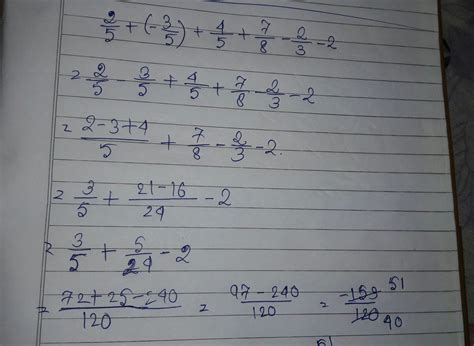 2/5 + (-3/5) + 4/5 + 7/8 - 2/3 - 2
= 2/5 - 3/5 + 4/5 + 7/8 - 2/3 - 2
= (2-3+4)/5 + 7/8 - 2/3 - 2.
= 3/5 + (21-16)/24 - 2
= 3/5 + 5/24 - 2
= (72+25-240)/120 = (97-240)/120 = -153/120 51 40
51